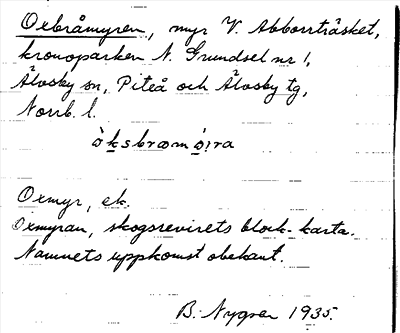 Oxbråmyren, myr V. Abborrträsket,
kronoparken N. Grundsel nr 1,
Älvsby sn, Piteå och Älvsby tg,
Norrb. l.
Oxmyr, ek.
Oxmyran, skogsrevirets block-karta.
Namnets uppkomst obekant.
B. Nygren 1935.